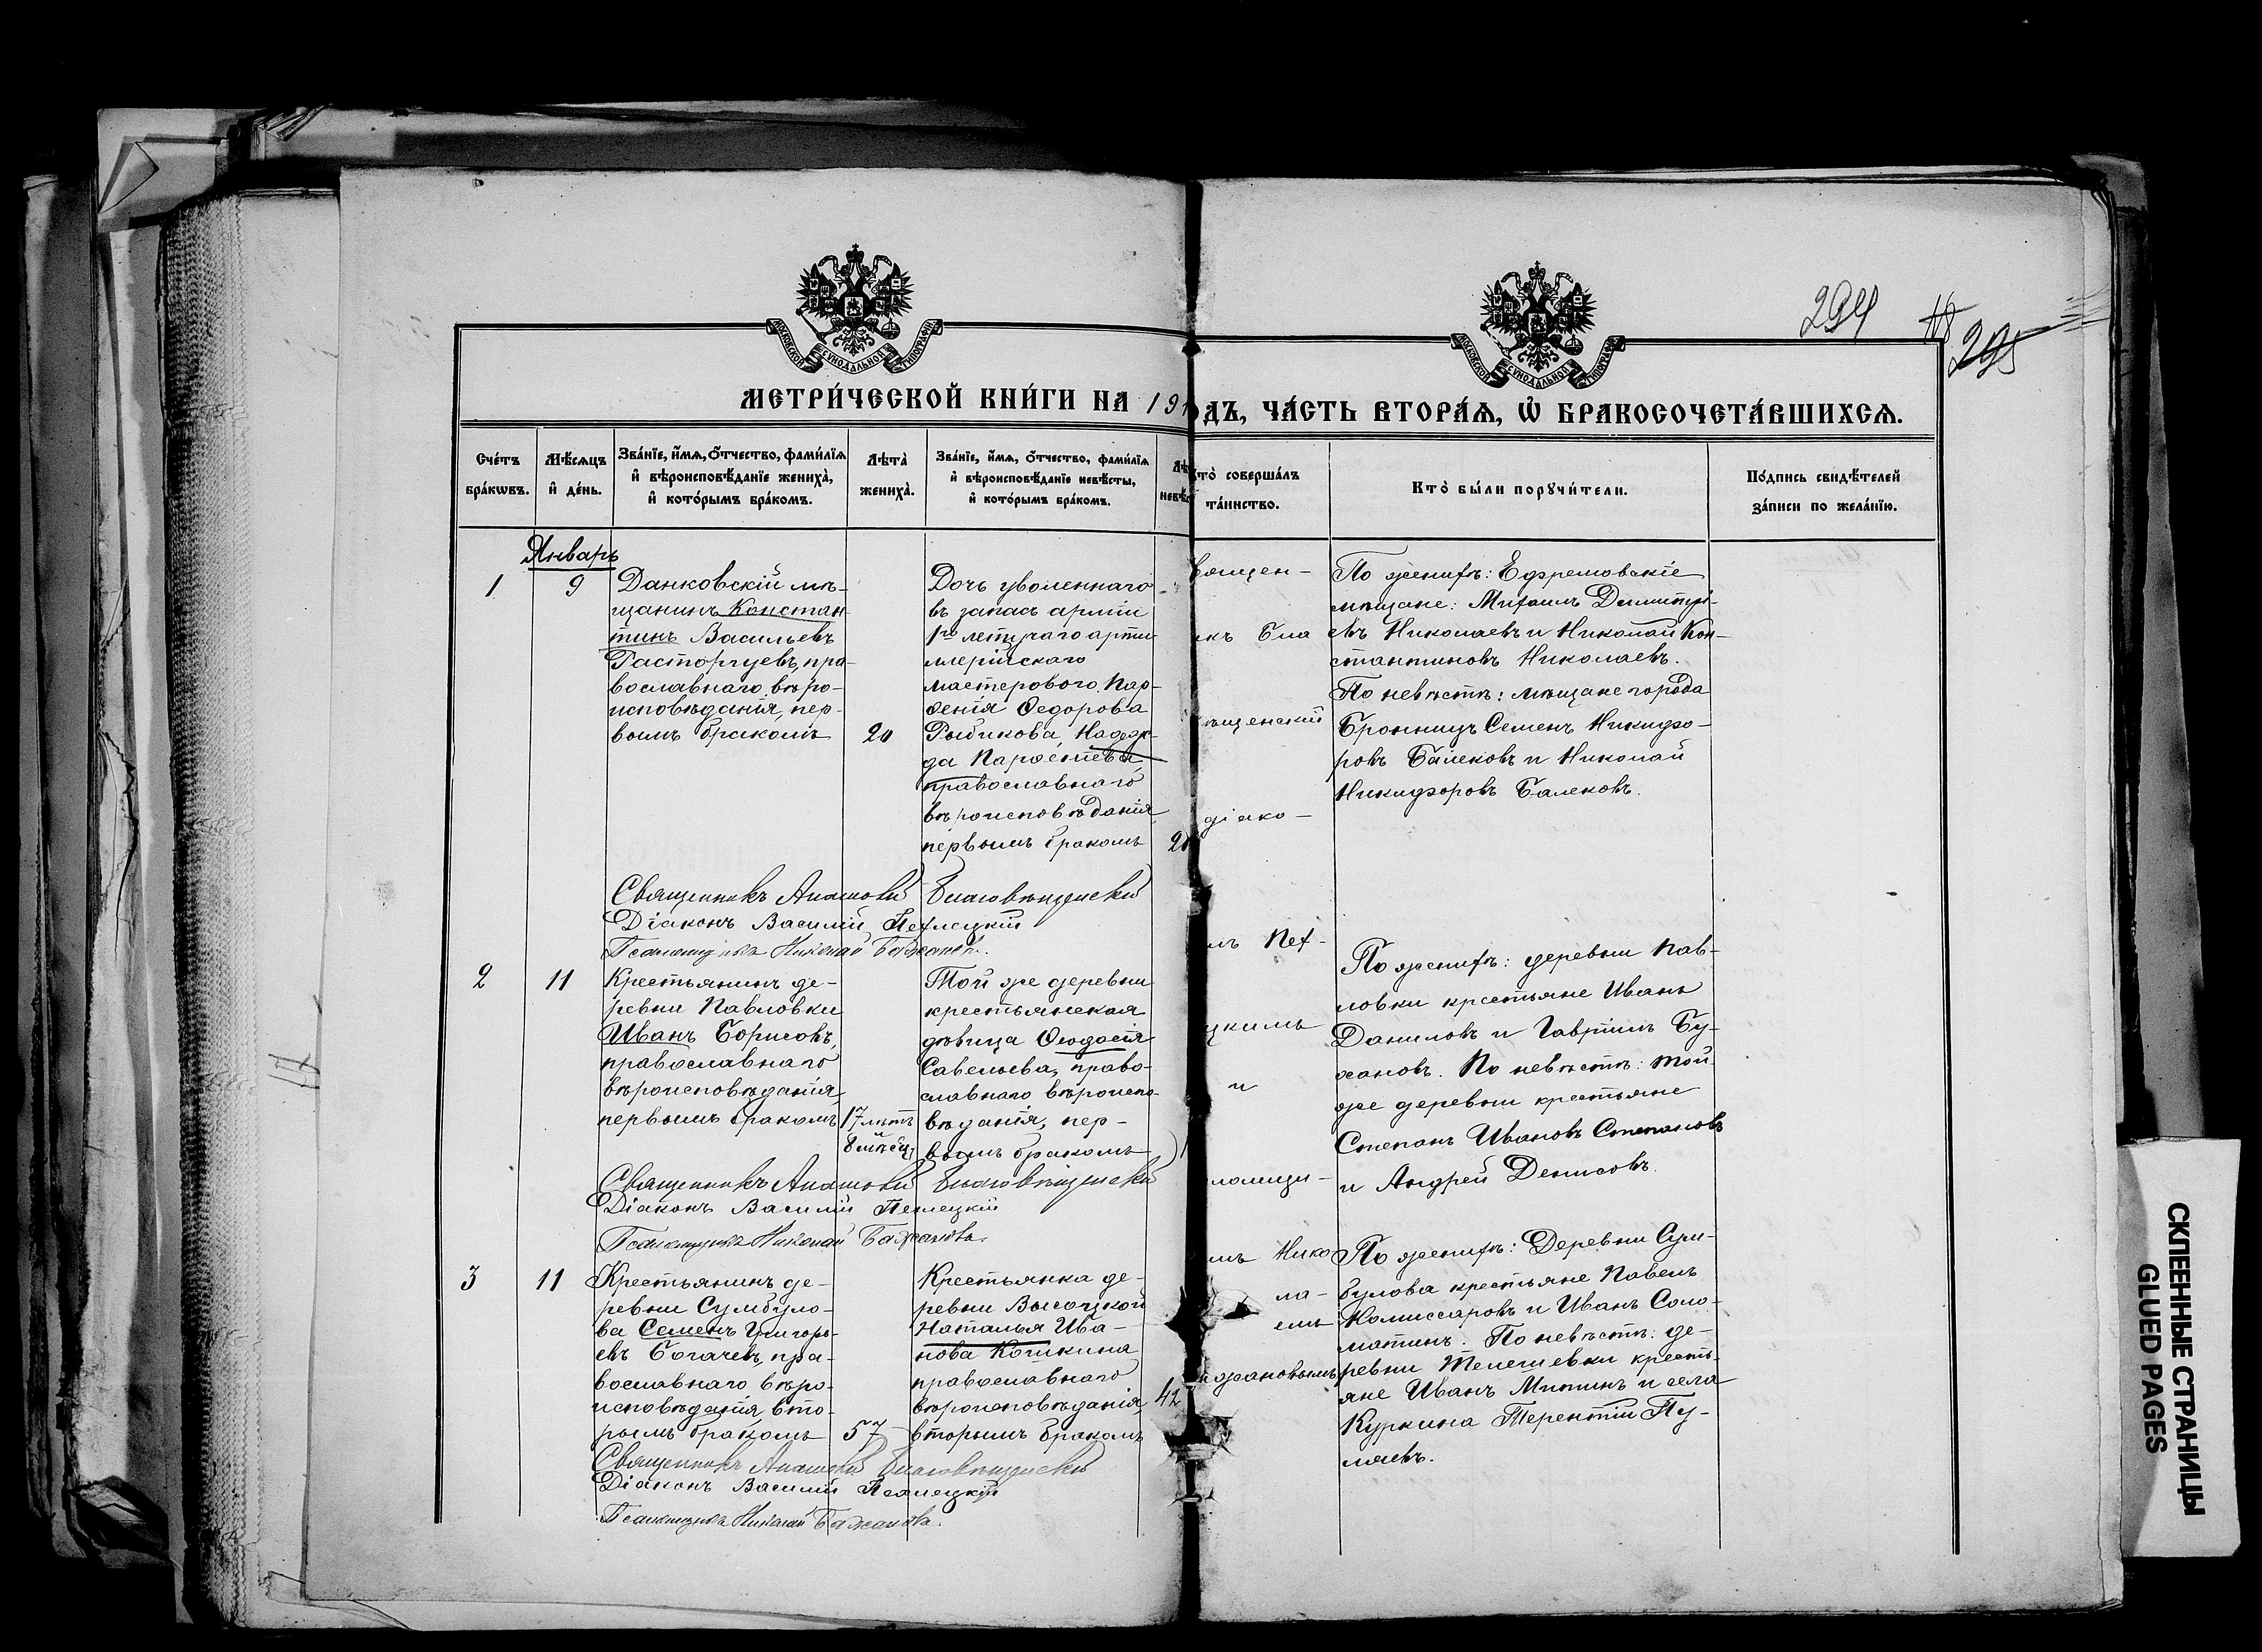 294
18
295
МОСКОВСКОЙ СѴНОДАЛЬНОЙ ТИПОГРАФІИ
МОСКОВСКОЙ СѴНОДАЛЬНОЙ ТИПОГРАФІИ
МЕТРИ́ЧЕСКОЙ КНИ́ГИ НА 191
ДЪ, ЧА́СТЬ ВТОРА́Ѧ, Ѽ БРАКОСОЧЕТА́ВШИХСѦ.
Сче́тъ
бра́кѡвъ.
Мѣ́сѧцъ
и҆ де́нь.
Зва́нїе, и҆́мѧ, ѻ҆́тчество, фами́лїѧ
и҆ вѣроисповѣ́данїе жениха̀,
и҆ кото́рымъ бра́комъ.
Лѣта̀
жениха̀.
Зва́нїе, и҆́мѧ, ѻ҆́тчество, фами́лїѧ
и҆ вѣроисповѣ́данїе невѣ́сты,
и҆ кото́рымъ бра́комъ.
Лѣ
невѣс
то̀ соверша́лъ
та́инство.
Кто̀ бы́ли порꙋчи́тели.
По́дпись свидѣ́телей
за́писи по жела́нїю.
Январь
1
9
Данковскій мѣ-
щанинъ Констан
тинъ Васильевъ
Расторгуевъ, пра-
вославнаго вѣро-
исповѣданія, пер-
вымъ бракомъ
20
Дочь уволеннаго
въ запасъ арміи
1го летучаго арти
ллерійскаго
мастерового Пар-
ѳенія Ѳедорова
Рыбикова Надеж-
да Парѳенева
православнаго
вѣроисповѣданія
первымъ бракомъ
2
вящен-
къ Бла
вѣщенскій
діако-
По женихѣ: Ефремовскіе
мѣщане: Михаилъ Димитрі-
евъ Николаевъ и Николай Кон-
стантиновъ Николаевъ.
По невѣстѣ: мѣщане города
Бронницъ Семенъ Никифо-
ровъ Балековъ и Николай
Никифоровъ Балековъ.
Священникъ Благовѣщенскій
Діаконъ Василій Пехлецкій
Псаломщикъ Николай Бажановъ.
2
11
Крестьянинъ де-
ревни Павловки
Иванъ Борисовъ,
православнаго
вѣроисповѣданія
первымъ бракомъ
17 лѣтъ
8 мѣсяц
Той же деревни
крестьянская
дѣвица Ѳеодосія
Савельева, право-
славнаго вѣроиспо-
вѣданія, пер-
вымъ бракомъ
мъ Пех-
цкимъ
и
ломщи-
По женихѣ: деревни Пав-
ловки крестьяне Иванъ
Даниловъ и Гавріилъ Бу-
хановъ. По невѣстѣ: той-
же деревни крестьяне
Степанъ Ивановъ Степановъ
и Андрей Денисовъ.
Священникъ Благовѣщенскій
Діаконъ Василій Пехлецкій
Псаломщикъ Николай Бажановъ.
3
11
Крестьянинъ де-
ревни Сумбуло-
ва Семенъ Григорь-
евъ Богачевъ, пра-
вославнаго вѣро-
исповѣданія, вто-
рымъ бракомъ
57
Крестьянка де-
ревни Высоцкой
Наталья Ива-
нова Кошкина
православнаго
вѣроисповѣданія,
вторымъ бракомъ
42
мъ Нико
ла-
емъ
жановымъ
По женихѣ: Деревни Сум-
булова крестьяне Павелъ
Комиссаровъ и Иванъ Соло-
матинъ. По невѣстѣ: де-
ревни Телешевки кресть-
яне Иванъ Митинъ и села
Куркина Терентій Пу-
ляевъ.
Священникъ Благовѣщенскій
Діаконъ Василій Пехлецкій
Псаломщикъ Николай Бажановъ.
СКЛЕЕННЫЕ СТРАНИЦЫ
GLUED PAGES